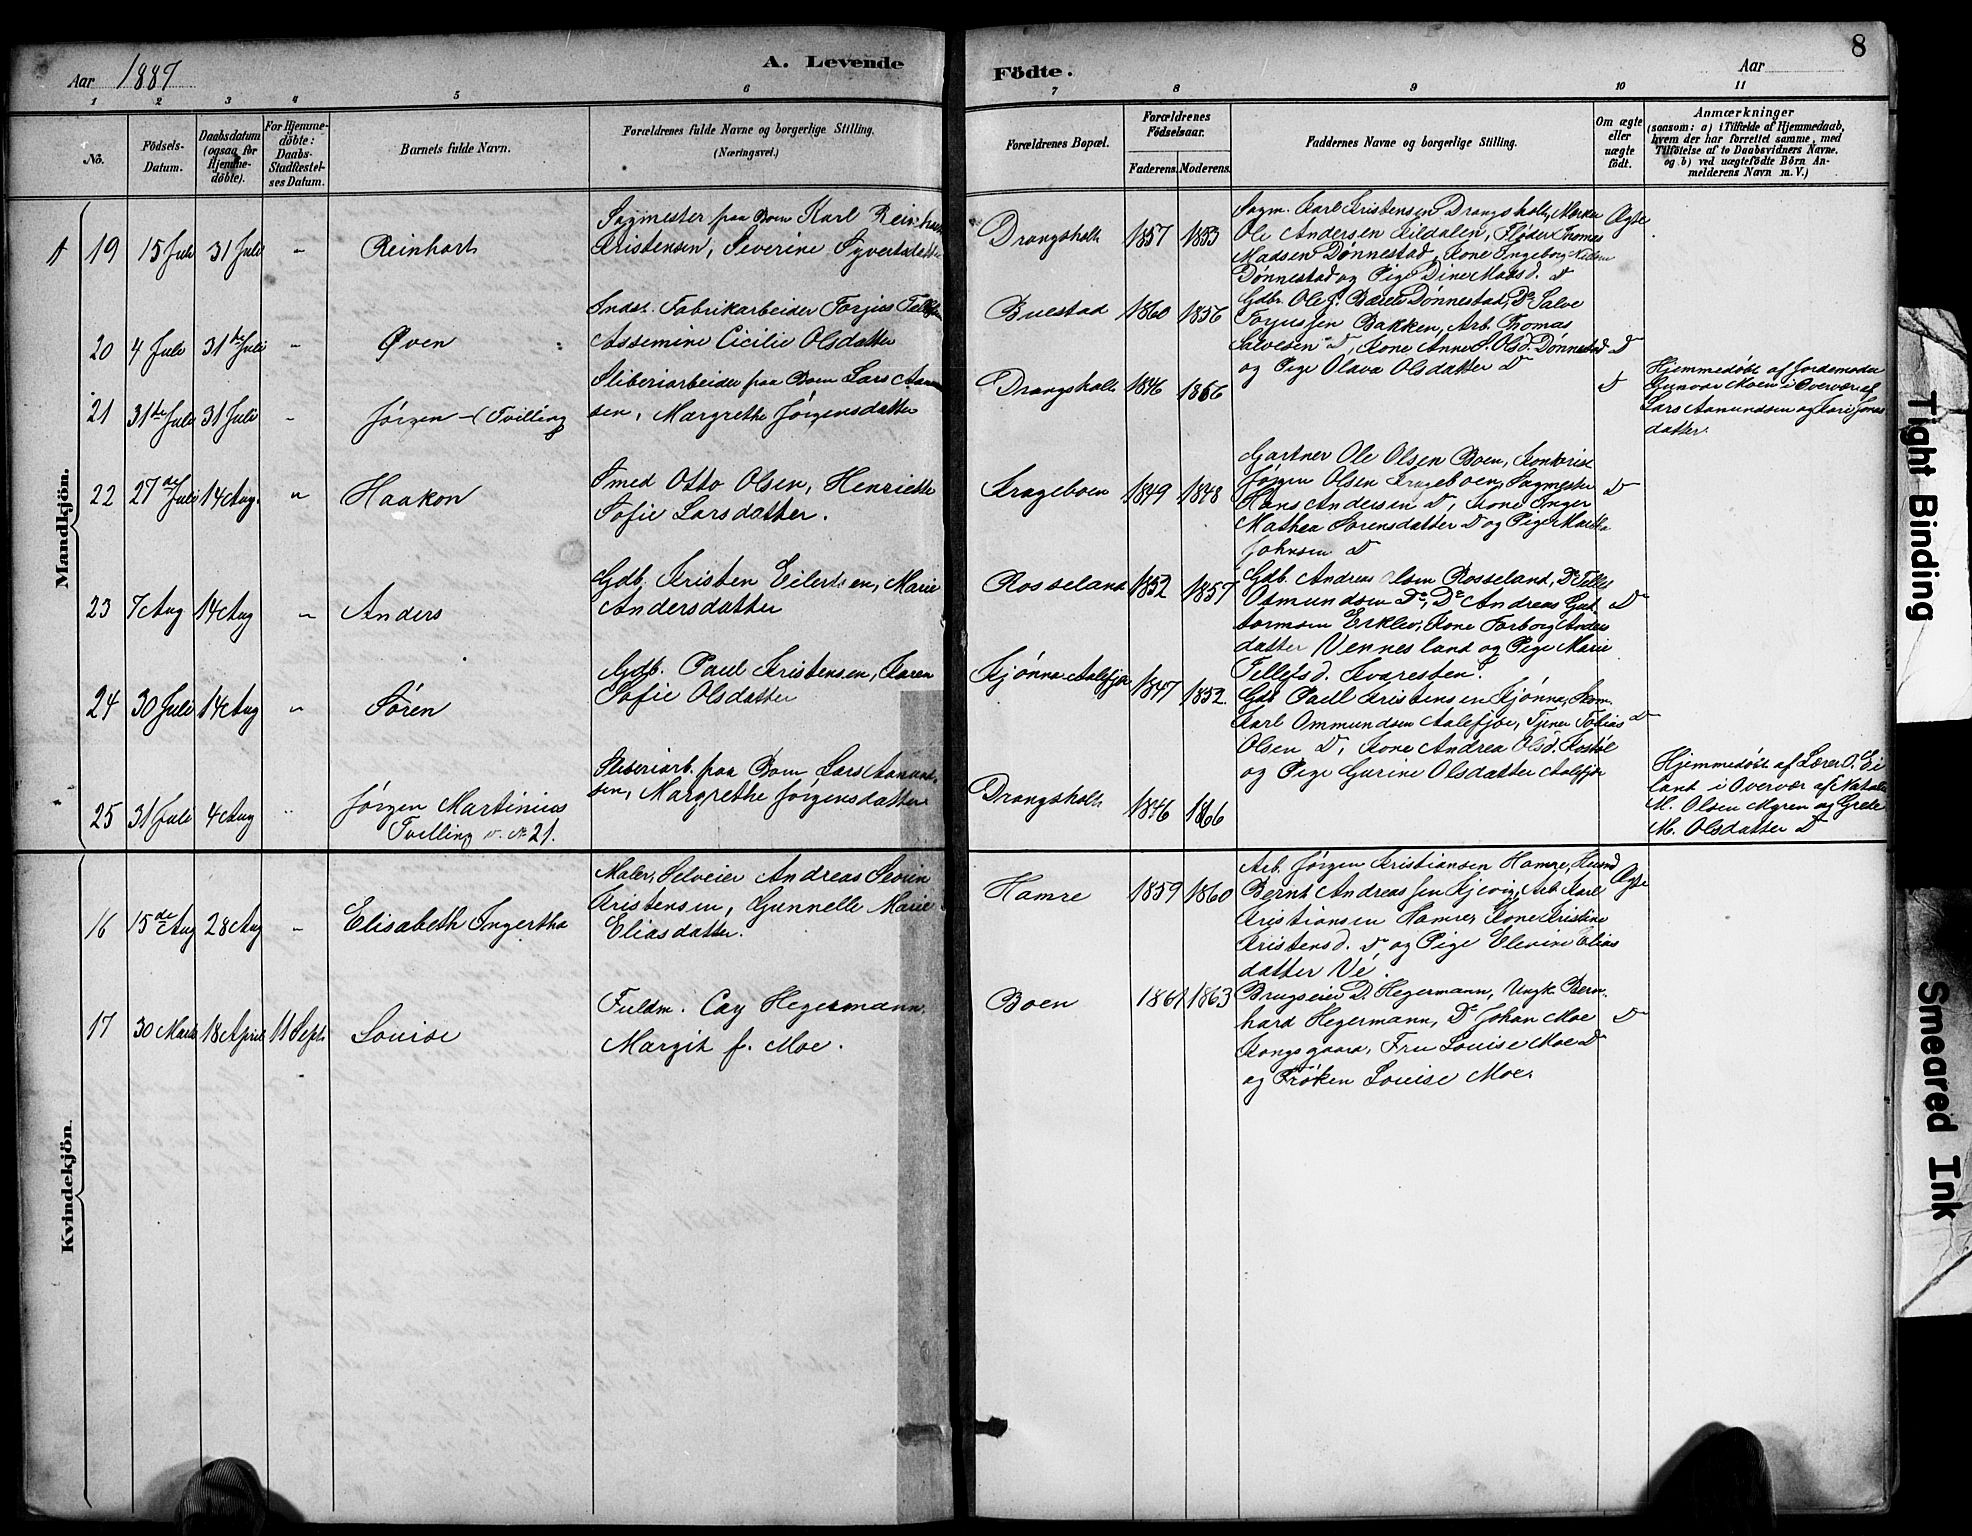 Aar 1887
A. Levende
Födte.
Aar
8
1 2 3 4 5 6 7 8 9 10 11
No.
Födsels-
Datum.
Daabsdatum
(ogsaa for
Hjemme-
döbte).
For Hjemme-
döbte:
Daabs-
Stadfæstel-
ses Datum.
Barnets fulde Navn.
Forældrenes fulde Navne og borgerlige Stilling.
(Næringsvei.)
Forældrenes Bopæl.
Forældrenes
Födselsaar.
Faderens. Moderens.
Faddernes Navne og borgerlige Stilling.
Om ægte
eller
uægte
födt.
Anmærkninger
(saasom: a) i Tilfælde af Hjemmedaab,
hvem der har forrettet samme, med
Tilföielse af to Daabsvidners Navne.
og b) ved uægtefödte Börn An-
melderens Navn m. V.)
Mandkjön.
19 15 Juli 31 Juli - Reinhart
Sagmester paa Boen Karl Reinhart
Kristensen, Severine Syvertsdatter
Drangsholt 1857 1853
Sagm. Karl Kristensen Drangsholt,
Ole Andersen Kildalen, Fløder Thomas
Madsen Dønnestad, Kone Ingeborg
Dønnestad og Pige Dine Madsd. D
Ægte
20 4 Juli 31te Juli - Øven
Inds. Fabrikarbeider Torjus
Assemine Cicilie Olsdatter
Buestad 1860 1856
Gdbr. Ole J. Dønnestad, Do Salve
Torjussen Bakken, Arb. Thomas
Salvesen D, Kone Anne S. Olsd. Dønnestad
og Pige Olava Olsdatter D
D
21 31te Juli 31 Juli - Jørgen - (Tvilling
Sliberiarbeider paa Boen Lars
sen, Margrethe Jørgensdatter
Drangsholt 1846 1866
D
Hjemmedøbt af Jordemoder
Gunvor Moen i Overvær af
Lars Aamundsen og Kari Jons
datter.
22 27de Juli 14 Aug. " Haakon
Smed Otto Olsen, Henriette
Sofie Larsdatter.
Krageboen 1849 1848
Gartner Ole Olsen Boen, Kontorist
Jørgen Olsen Krageboen, Sagmester
Hans Andersen D, Kone Inger
Mathea Sørensdatter D og Pige
Johnsen D
D
23 7 Aug 14 Aug " Anders
Gdb. Kristen Eilertsen, Marie
Andersdatter
Rosseland 1852 1857
Gdb. Andreas Olsen Rosseland, Do
Osmundsen Do, Do Andreas Gut
tormsen Erklev, Kone Torborg Anders
datter Vennesland og Pige Marie
Tellefsd. Kvaresten.
D
24 30 Juli 14 Aug " Søren
Gdb. Paul Kristensen, Karen
Sofie Olsdatter
Kjønna Aalefjær 1847 1852.
Gdb Paul Kristensen Kjønna,
Karl Ommundsen Aalefjær, Tjener Tobias
Olsen D, Kone Andrea Olsd. Kostøl
og Pige Gurine Olsdatter Aalefjær
D
25 31 Juli 4 Aug " Jørgen Martinius
Tvilling v. No 21.
Sliberiarb. paa Boen Lars Aamund-
sen, Margrethe Jørgensdatter
Drangsholt 1846 1866
Hjemmedøbt af Lærer O. Ei
land i Overvær af
M. Olsen Myren og Grete
M. Olsdatter D
Kvindekjön.
16 15de Aug 28 Aug - Elisabeth Ingertha
Maler, Selveier Andreas Severin
Kristensen, Gunnelle Marie
Eliasdatter.
Hamre 1859 1860
Arb. Jørgen Kristiansen Hamre,
Bernt Andreassen Kjevig, Arb. Karl
Kristiansen Hamre, Kone Kristine
Kristensd. D og Pige Elevine Elias
datter Ve.
Ægte
17 30 Marts 18 April 11 Sept. Louise
Fuldm. Cay Hegermann,
Margit f. Moe.
Boen 1861 1863
Brugseier D. Hegermann, Ungk. Bern-
hard Hegermann, Do Johan Moe
Kongsgaard, Fru Louise Moe D
og Frøken Louise Moe.
D
Tight Binding
Smeared Ink